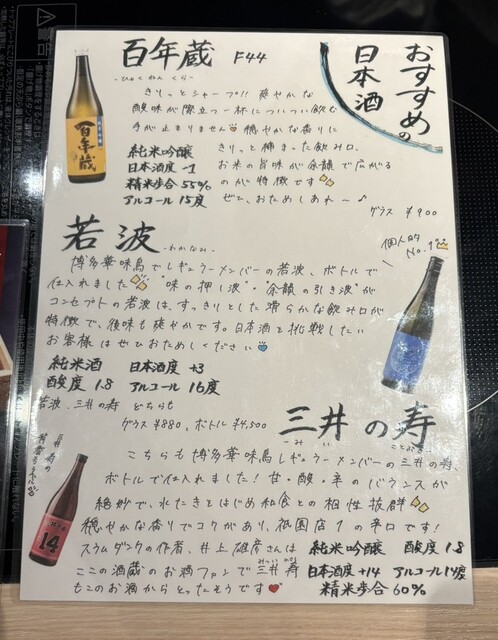 おすすめの
日本酒
百年蔵 F44
-ひゃくねん くら-
きりっとシャープ!! 爽やかな
酸味が際立つ一杯についつい飲む
手が止まりません 穏やかな香りに
きりっと締まった飲み口、
お米の旨味が余韻で広がる
のが特徴です
ぜひ、おためしあれ〜♪
純米吟醸
日本酒度 -1
精米歩合 55%
アルコール 15度
グラス ¥900
百年蔵
若波 -わかなみ-
個人的
No.1
博多華味鳥でレギュラーメンバーの若波、ボトルで
仕入れました "味の押し波"・余韻の引き波"が
コンセプトの若波は、すっきりとした滑らかな飲み口が
特徴で、後味も爽やかです。日本酒と挑戦したい
お客様はぜひおためしください
純米酒 日本酒度 +3
酸度 1.8 アルコール 16度
若波、三井の寿 どちらも
グラス ¥880、ボトル ¥4,500
三井の寿
みい ことぶき
こちらも博多華味鳥レギュラーメンバーの三井の寿、
ボトルで仕入れました! 甘・酸・辛のバランスが
絶妙で、水たきをはじめ和食との相性抜群
穏やかな香りでコクがあり、祇園店1の辛口です!
スラムダンクの作者、井上雄彦さんは
ここの酒蔵のお酒ファンで三井 寿
みつい ひさし
もこのお酒からとったそうです
純米吟醸 酸度 1.8
日本酒度 +14 アルコール 14度
精米歩合 60%
14